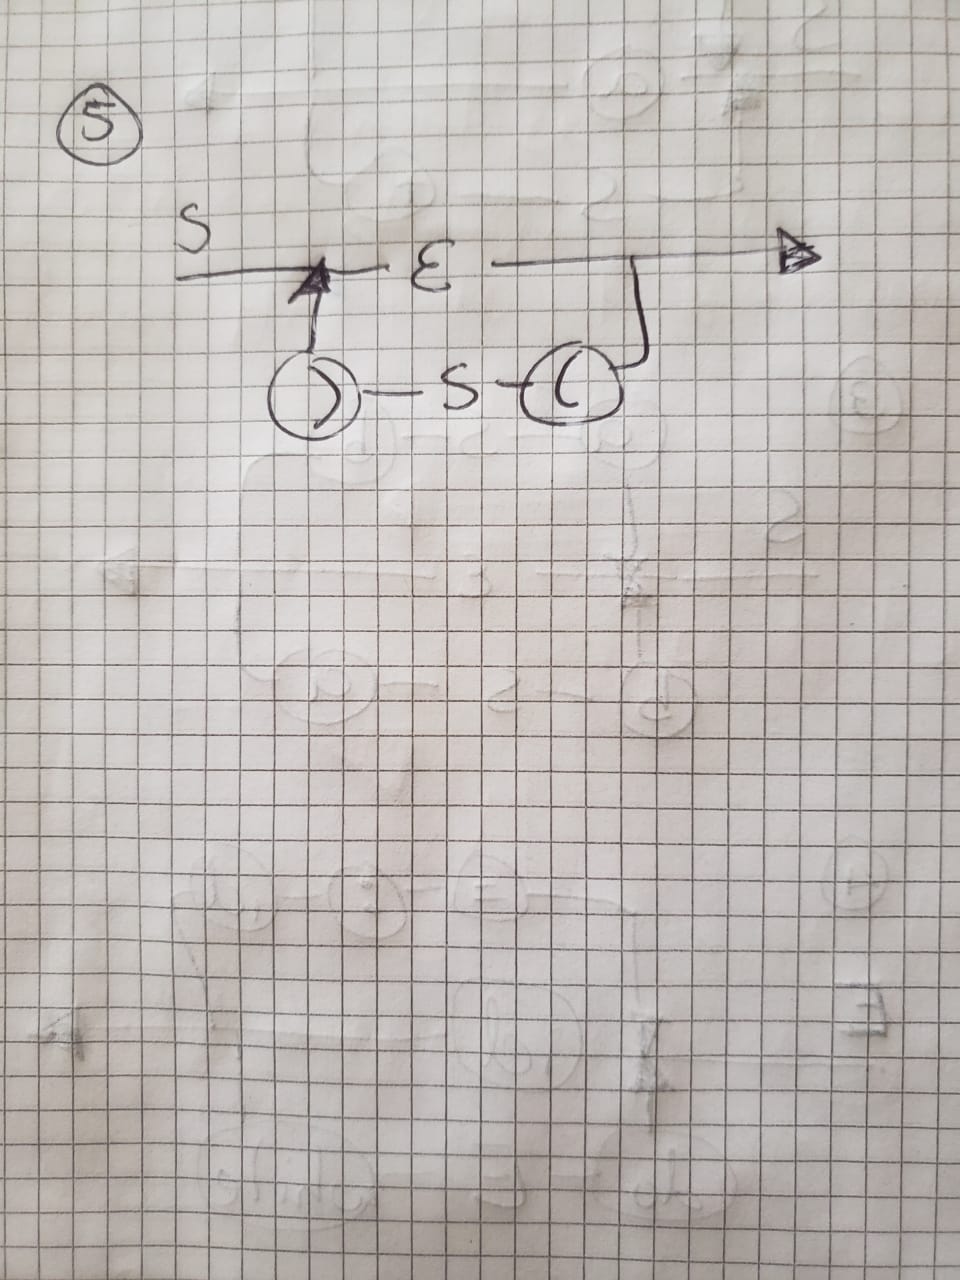 5
S
ε
) S (